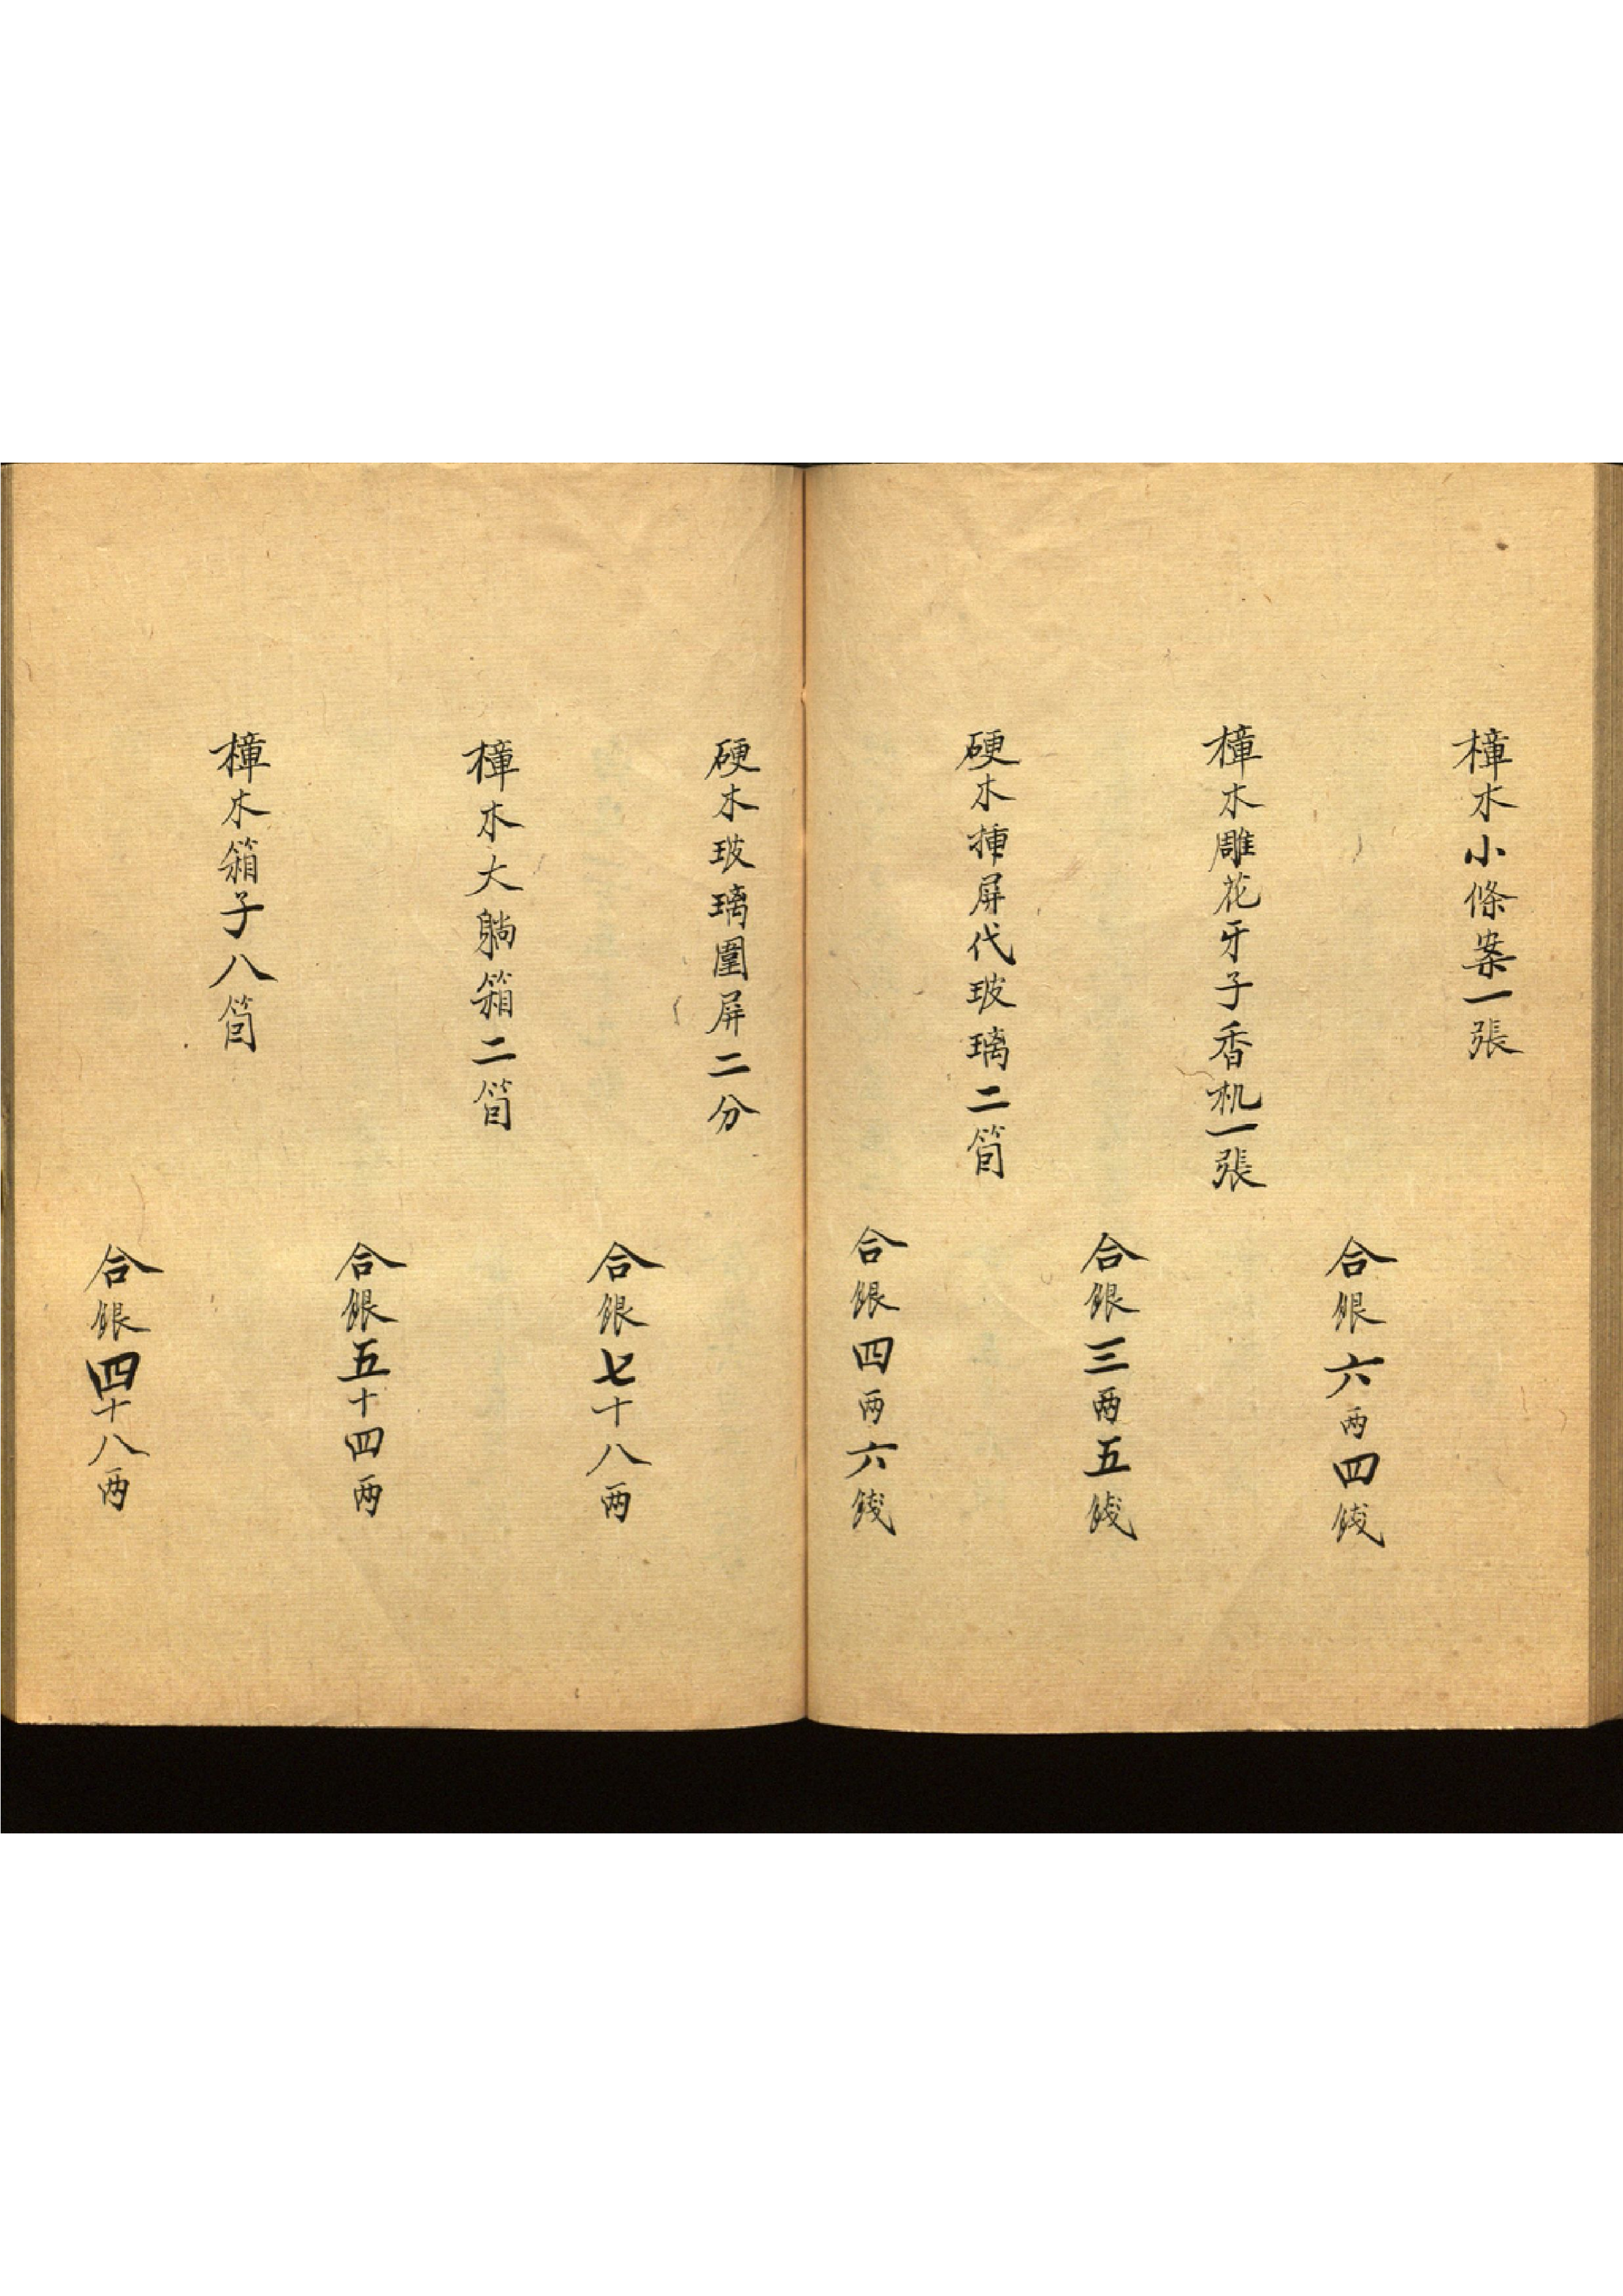 樟木小條案一張
合銀六两四錢
樟木雕花牙子香机一張
合銀三两五錢
硬木揷屏代玻璃二箇
合銀四两六錢
硬木玻璃圍屏二分
合銀七十八两
樟木大躺箱二箇
合銀五十四两
樟木箱子八箇
合銀四十八两